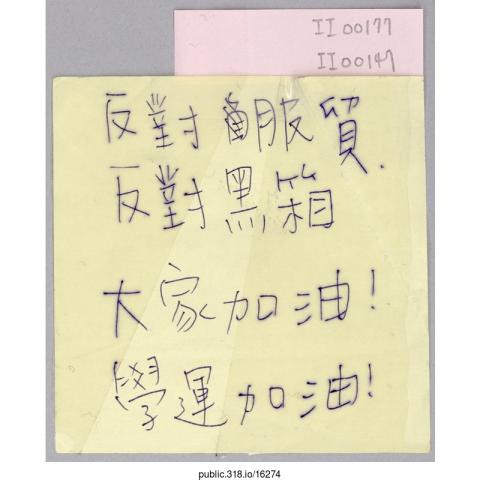 II00177
II00147
反對服貿.
反對黑箱
大家加油!
學運加油!
public.318.io/16274